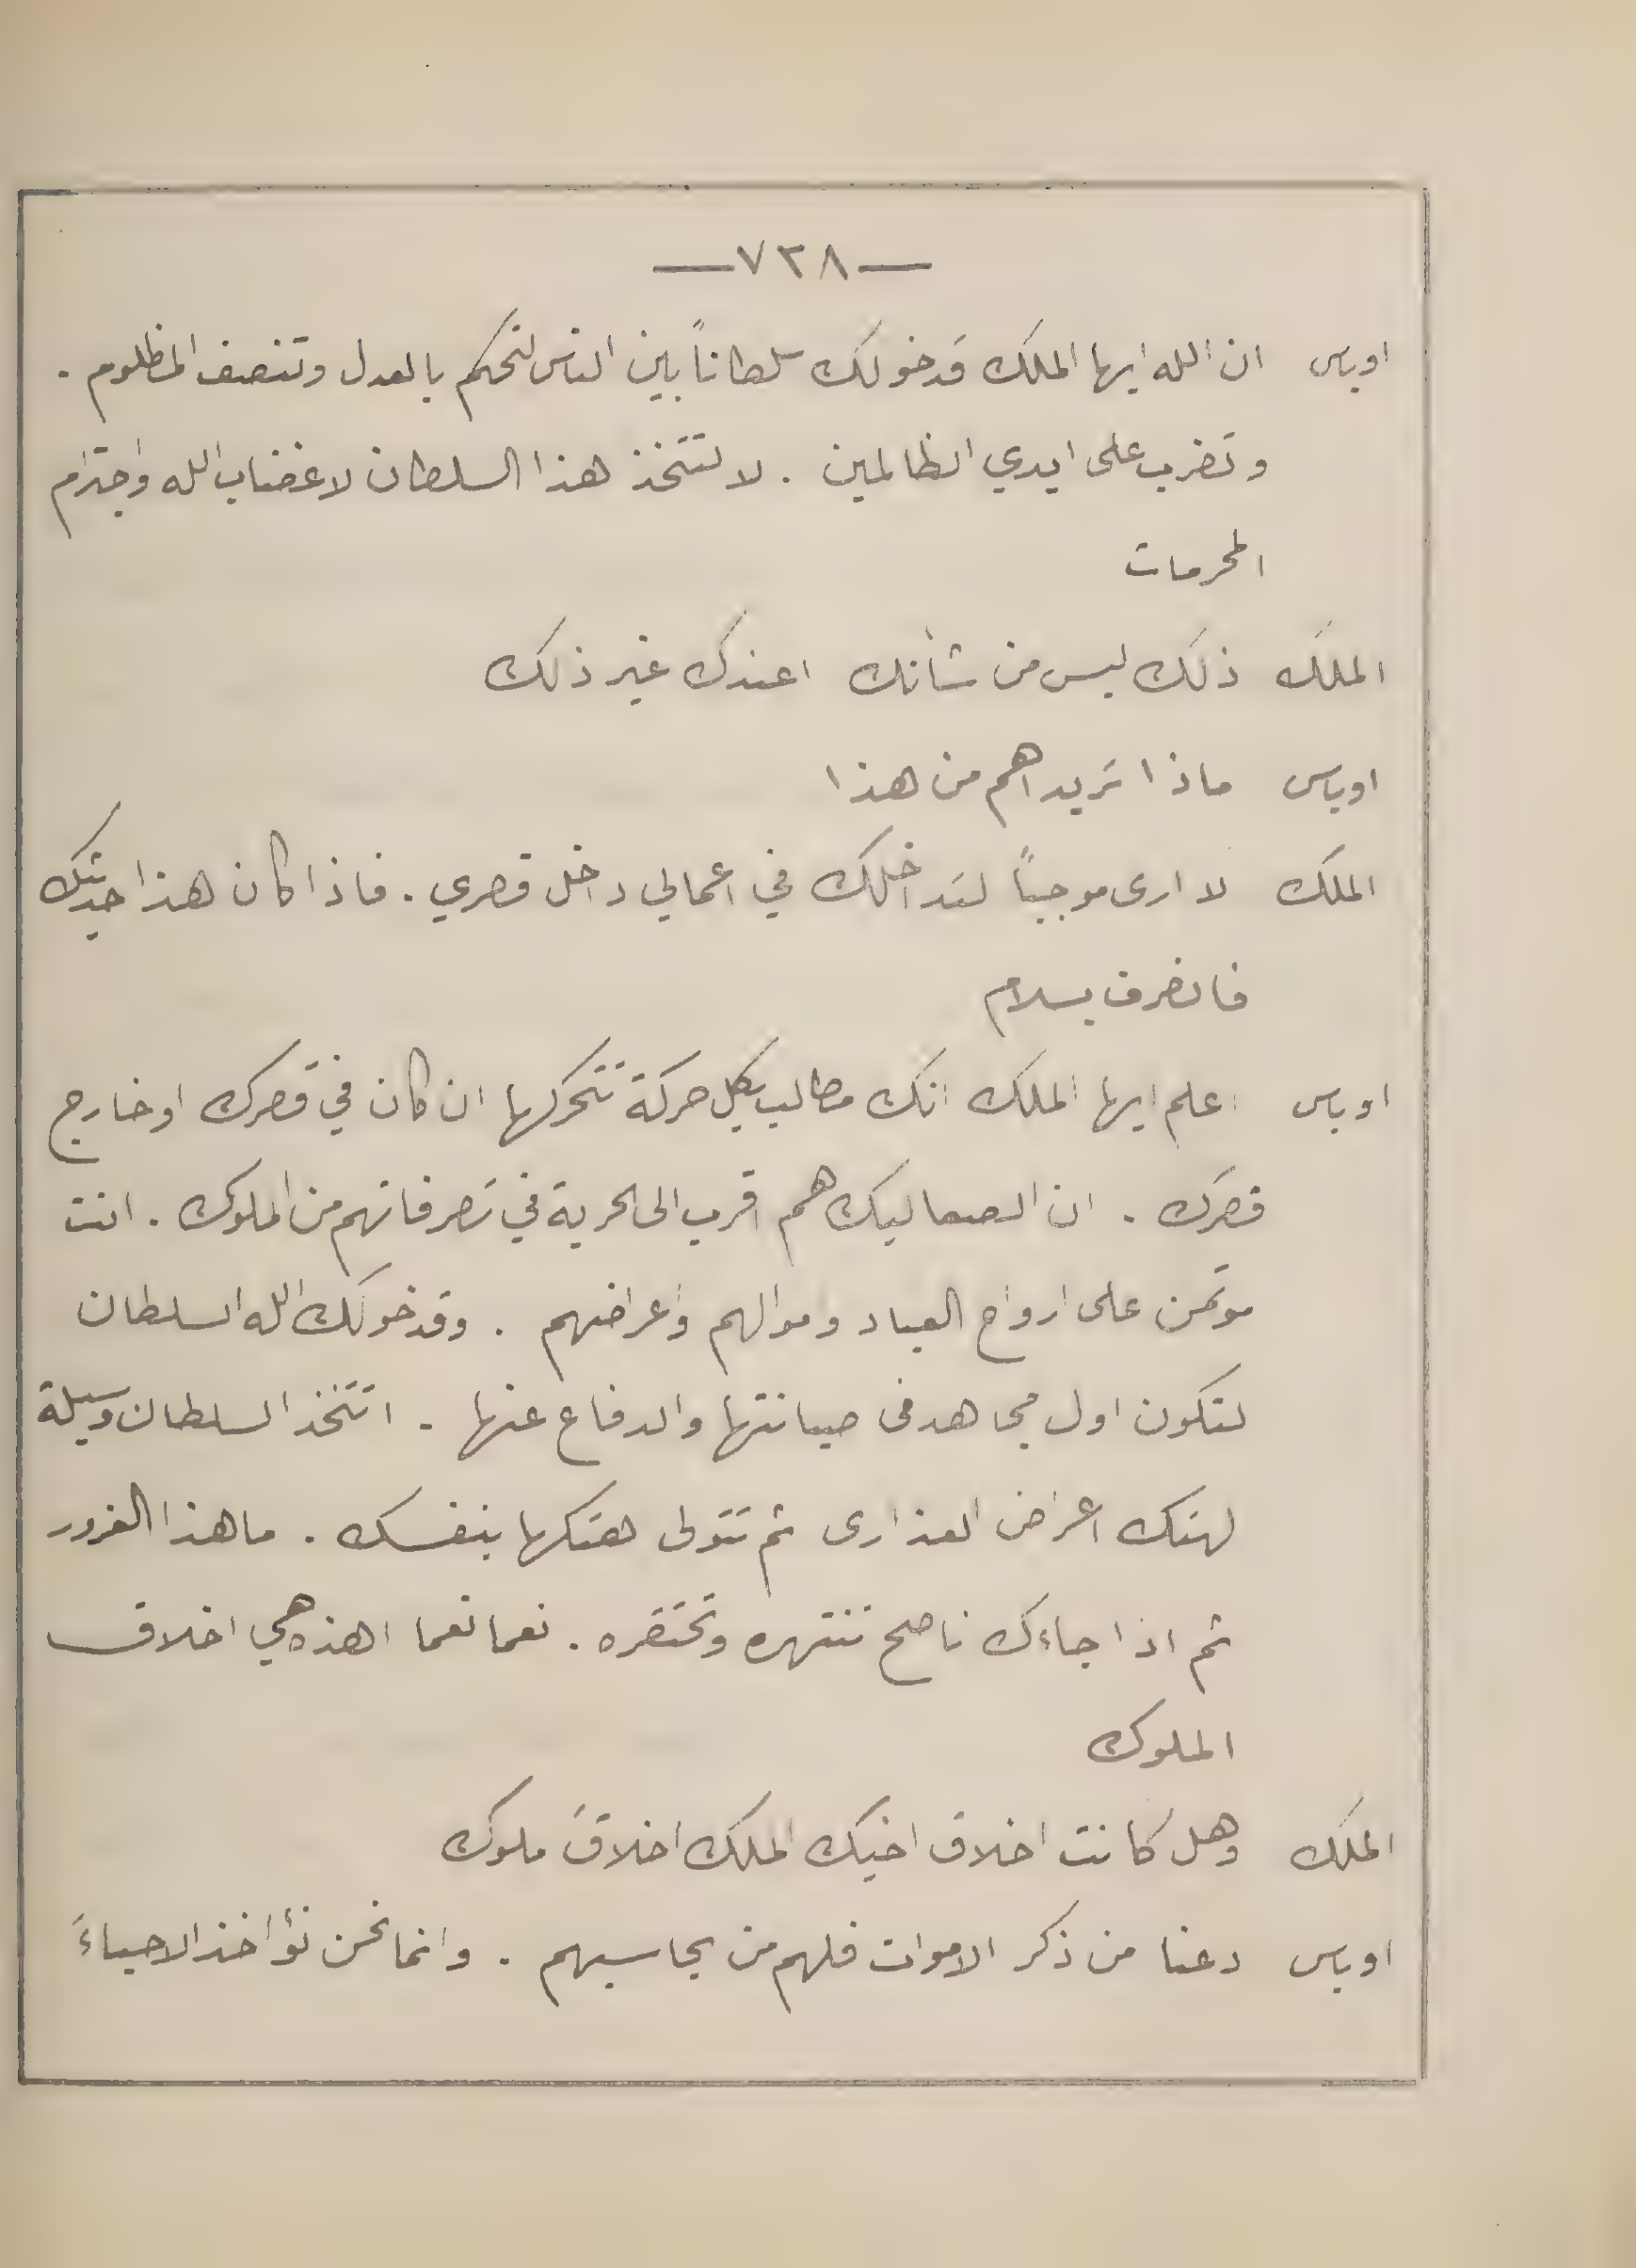 —٧٣٨—
اوباس ان الله ايها الملك قد خولك سلطاناً بين الناس لتحكم بالعدل وتنصف المظلوم .
وتضرب على ايدي الظالمين . لا لتتخذ هذا السلطان لاغضاب الله واجترام
المحرمات
الملك ذلك ليس من شأنك اعندك غير ذلك
اوباس ماذا تريد اهم من هذا
الملك لا ارى موجباً لتداخلك في اعمالي داخل قصري . فاذا كان هذا حديثك
فانصرف بسلام
اوباس اعلم ايها الملك انك مطالب بكل حركة تتحركها ان كان في قصرك او خارج
قصرك . ان الصعاليك هم اقرب الى الحرية في تصرفاتهم من الملوك . انت
موتمن على ارواح العباد وموالهم واعراضهم . وقد خولك الله السلطان
لتكون اول مجاهد فى صيانتها والدفاع عنها . اتتخذ السلطان وسيلة
لهتك اعراض العذارى ثم تتولى هتكها بنفسك . ما هذا الغرور
ثم اذا جاءك ناصح تنتهره وتحتقره . نعما نعما اهذه هي اخلاق
الملوك
الملك وهل كانت اخلاق اخيك الملك اخلاقَ ملوك
اوباس دعنا من ذكر الاموات فلهم من يحاسبهم . وانما نحن نؤاخذ الاحياءَ